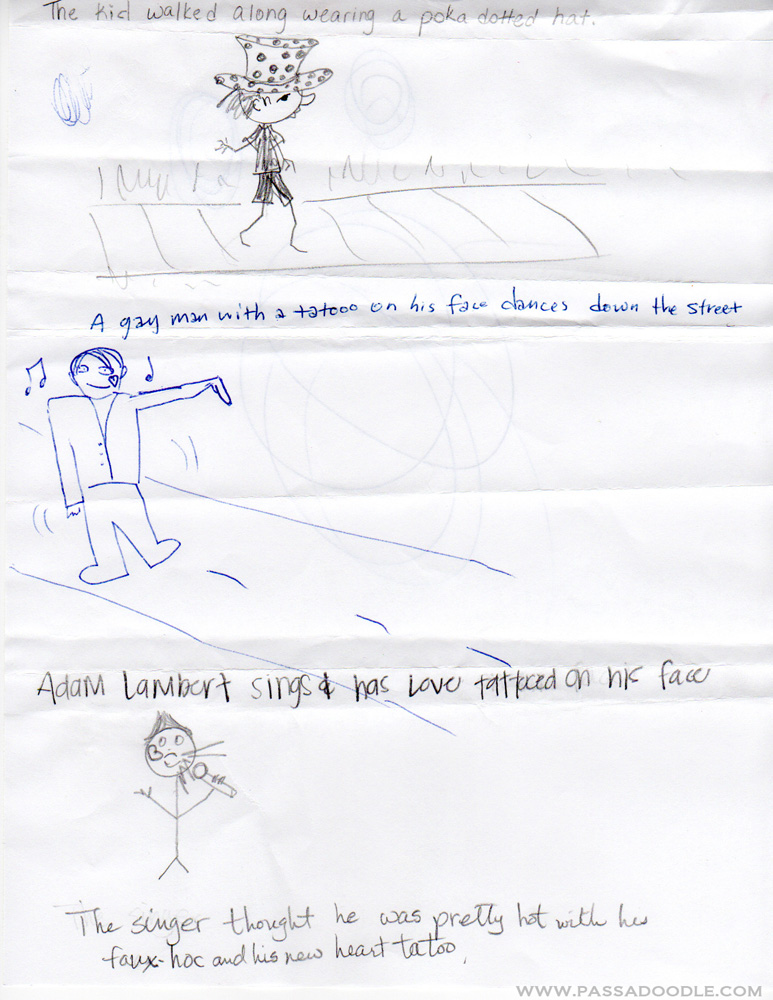 The kid walked along wearing a poka dotted hat.
A gay man with a tatooo on his face dances down the street
Adam Lambert sings & has Love tattooed on his face
The singer thought he was pretty hot with his
faux-hoc and his new heart tatoo.
WWW.PASSADOODLE.COM